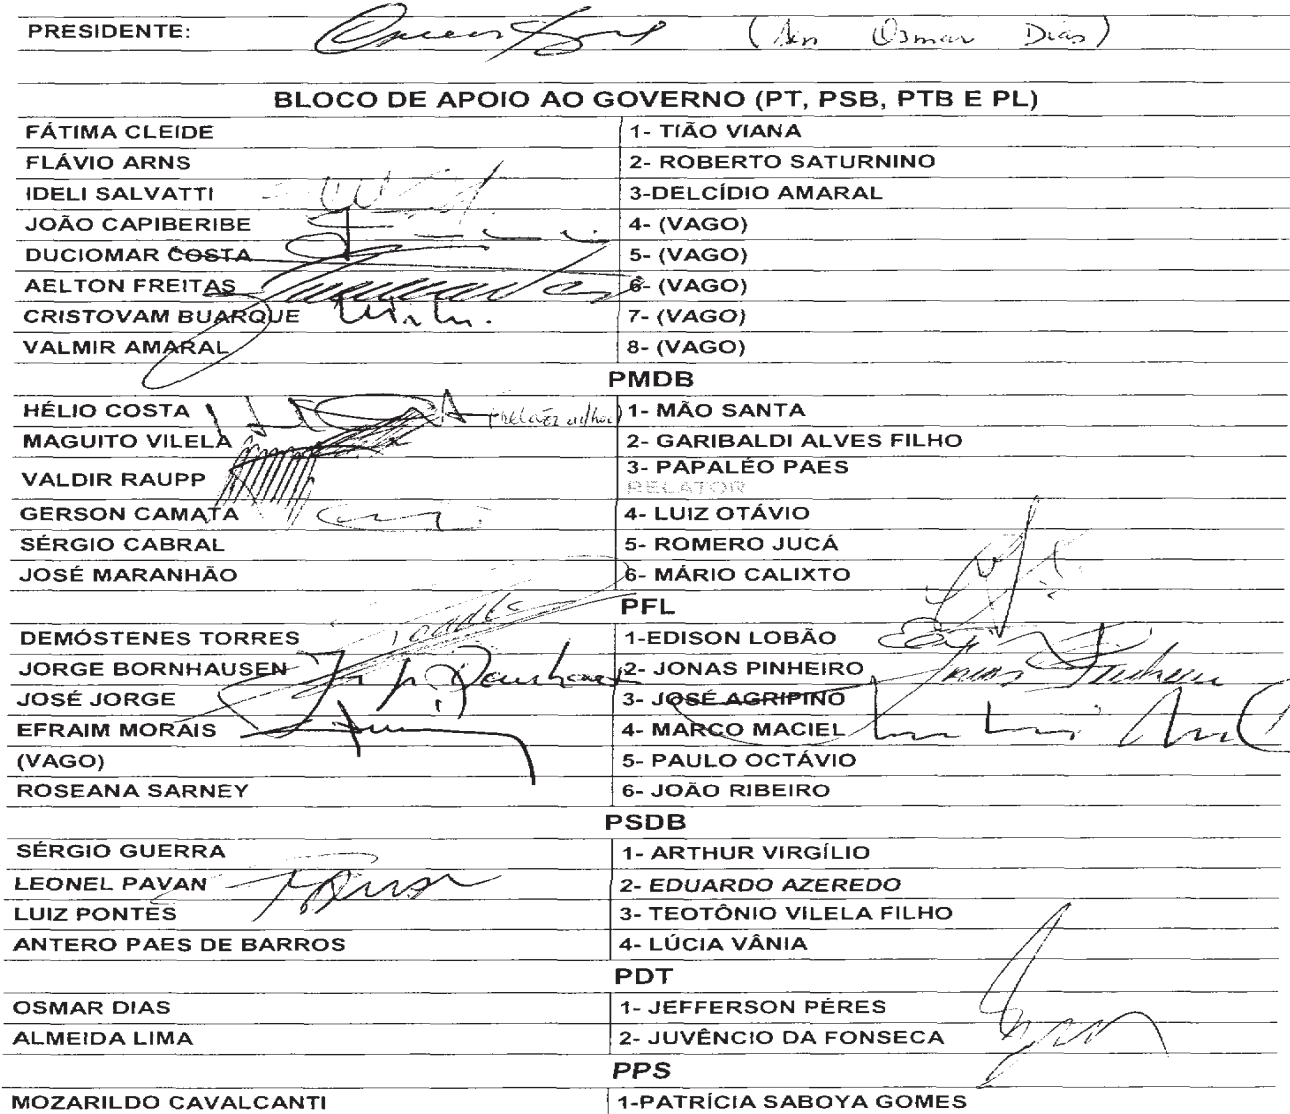 PRESIDENTE: (Sen Osmar Dias)
BLOCO DE APOIO AO GOVERNO (PT, PSB, PTB E PL)
FÁTIMA CLEIDE 1- TIÃO VIANA
FLÁVIO ARNS 2- ROBERTO SATURNINO
IDELI SALVATTI 3-DELCÍDIO AMARAL
JOÃO CAPIBERIBE 4- (VAGO)
DUCIOMAR COSTA 5- (VAGO)
AELTON FREITAS 6- (VAGO)
CRISTOVAM BUARQUE 7- (VAGO)
VALMIR AMARAL 8- (VAGO)
PMDB
HÉLIO COSTA 1- MÃO SANTA
MAGUITO VILELA 2- GARIBALDI ALVES FILHO
VALDIR RAUPP 3- PAPALÉO PAES
RELATOR
GERSON CAMATA 4- LUIZ OTÁVIO
SÉRGIO CABRAL 5- ROMERO JUCÁ
JOSÉ MARANHÃO 6- MÁRIO CALIXTO
PFL
DEMÓSTENES TORRES 1-EDISON LOBÃO
JORGE BORNHAUSEN 2- JONAS PINHEIRO Jonas Pinheiro
JOSÉ JORGE 3- JOSÉ AGRIPINO
EFRAIM MORAIS 4- MARCO MACIEL
(VAGO) 5- PAULO OCTÁVIO
ROSEANA SARNEY 6- JOÃO RIBEIRO
PSDB
SÉRGIO GUERRA 1- ARTHUR VIRGÍLIO
LEONEL PAVAN 2- EDUARDO AZEREDO
LUIZ PONTES 3- TEOTÔNIO VILELA FILHO
ANTERO PAES DE BARROS 4- LÚCIA VÂNIA
PDT
OSMAR DIAS 1- JEFFERSON PÉRES
ALMEIDA LIMA 2- JUVÊNCIO DA FONSECA
PPS
MOZARILDO CAVALCANTI 1-PATRÍCIA SABOYA GOMES